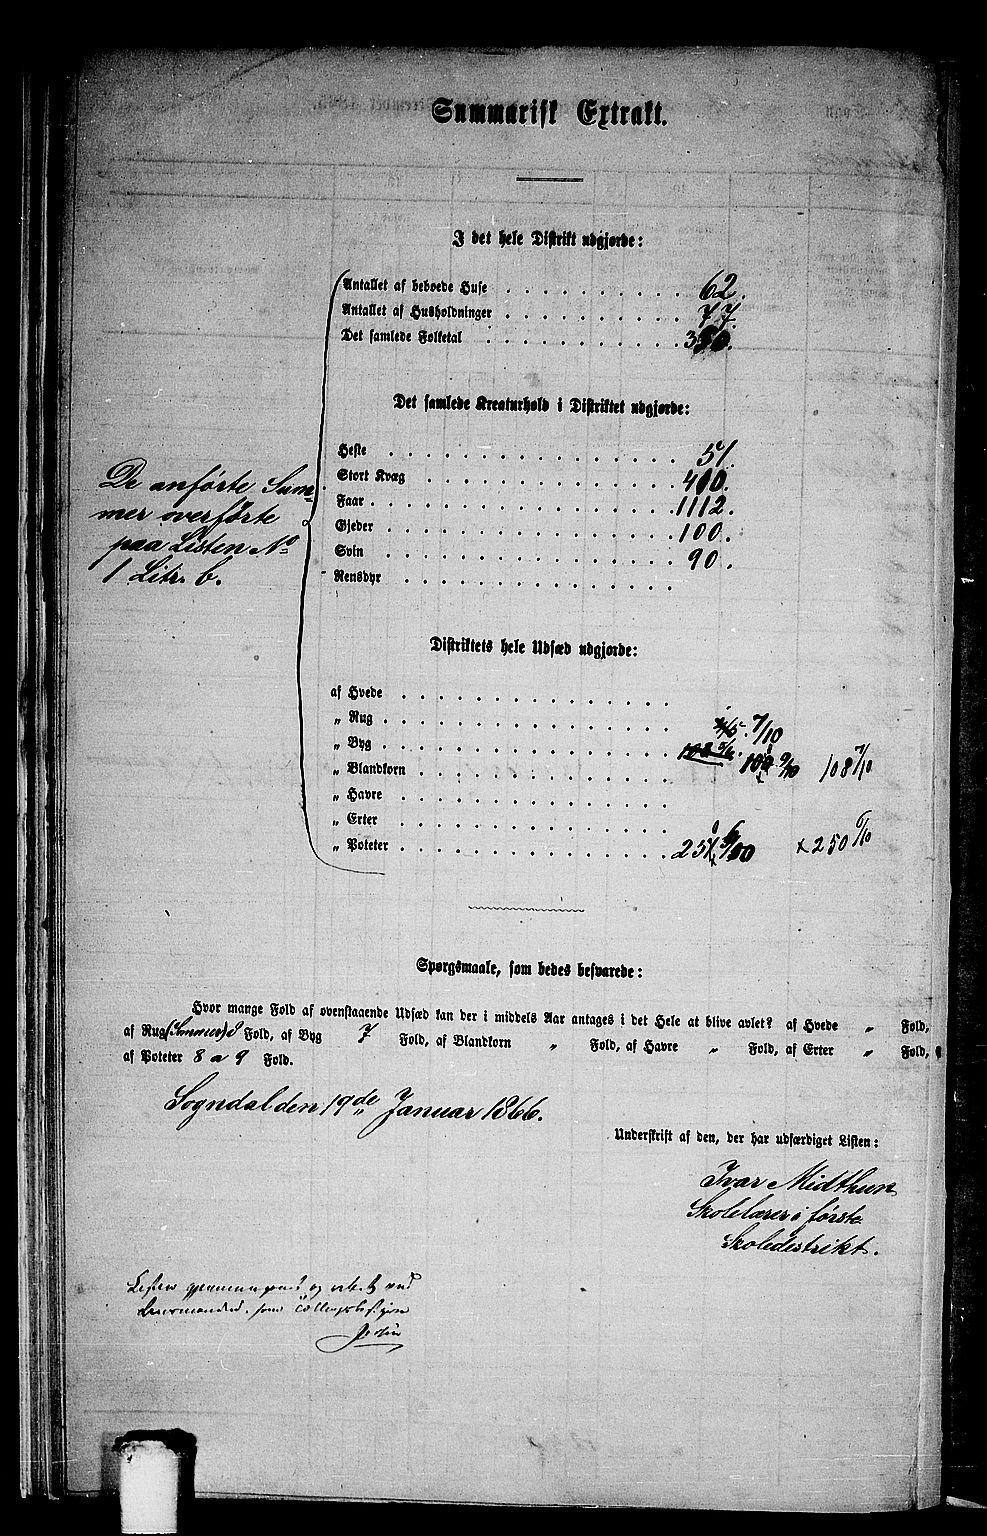 Summarisk Extrakt.
I det hele Distrikt udgjorde:
Antallet af beboede Huse 62.
Antallet af Husholdninger 77.
Det samlede Folketal
Det samlede Kreaturhold i Distriktet udgjorde:
Heste 51.
Stort Kvæg 400.
Faar 1112.
Gjeder 100.
Svin 90.
Rensdyr
De anførte Sum-
mer overførte
paa Listen No
1 Litr. b.
Distriktets hele Udsæd udgjorde:
af Hvede
„ Rug 7/10
„ Byg 108 5/6. 108 7/10
„ Blandkorn
„ Havre
„ Erter
„ Poteter x 250 6/10
Spørgsmaale, som bedes besvarede:
Hvor mange Fold af ovenstaaende Udsæd kan der i middels Aar antages i det Hele at blive avlet? af Hvede „ Fold,
af Rug (Sommer) 8 Fold, af Byg 7 Fold, af Blandkorn „ Fold, af Havre „ Fold, af Erter „ Fold,
af Poteter 8 a 9 Fold.
Sogndal den 19de Januar 1866.
Underskrift af den, der har udfærdiget Listen:
Ivar Midthun
Skolelærer i første
Skoledestrikt.
Listen gjennemgaaet og
Lensmanden, som Tællingsbestyrer